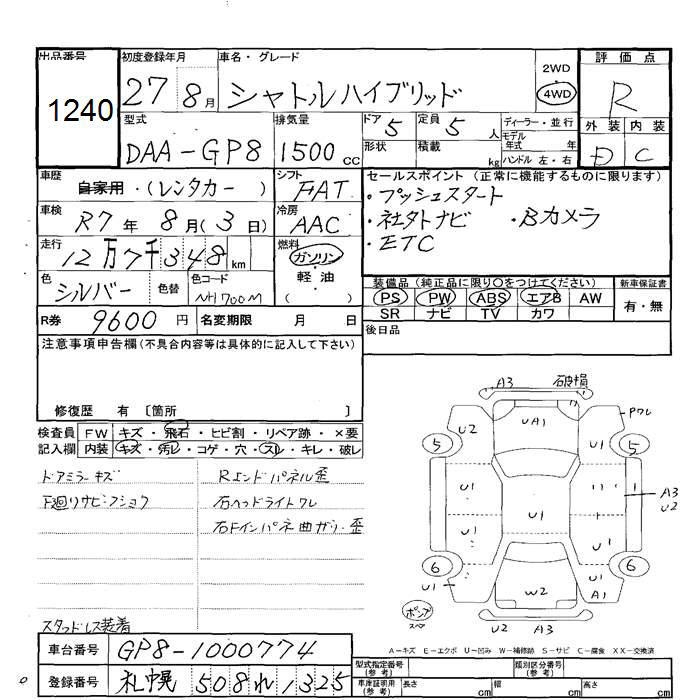 出品番号 初度登録年月 車名・グレード 評価点
1240 27 8月 シャトルハイブリッド 2WD 4WD R
型式 排気量 ドア 5 定員 5 人 ディーラー・並行 外装 内装
DAA-GP8 1500 cc 形状 積載 kg モデル年式 年式 D C
ハンドル 左・右
車歴 自家用・(レンタカー) シフト FAT セールスポイント (正常に機能するものに限ります)
車検 R7年 8月(3日) 冷房 AAC ・プッシュスタート
・社外ナビ ・Bカメラ
・ETC
走行 12万7千348km 燃料 ガソリン 軽油 ( )
色 シルバー 色替 色コード NH700M 装備品(純正品に限り〇をつけてください) 新車保証書
PS PW ABS エアB AW 有・無
SR ナビ TV カワ
R券 9600円 名変期限 月 日 後日品
注意事項申告欄(不具合内容等は具体的に記入して下さい)
修復歴 有 〔箇所 〕
検査員 FW キズ・飛石・ヒビ割・リペア跡・×要
記入欄 内装 キズ・汚レ・コゲ・穴・スレ・キレ・破レ
ドアミラーキズ Rエンドパネル歪
下廻りサビ・フショク 右ヘッドライトワレ
右Fインパネ曲ガリ・歪
スタッドレス装着
A3 破損
U2 UA1 Pワレ
5 U1 5
U1 A3
U2
U1 U1 U1
6 6
U1 W2 U1
A1
ポンプ
スペア U2 A3
A-キズ E-エクボ U-凹み W-補修跡 S-サビ C-腐食 XX-交換済
車台番号 GP8-1000774
型式指定番号(参考) 類別区分番号(参考)
登録番号 札幌 508 れ 1325
車庫証明用(参考) 長さ cm 幅 cm 高さ cm